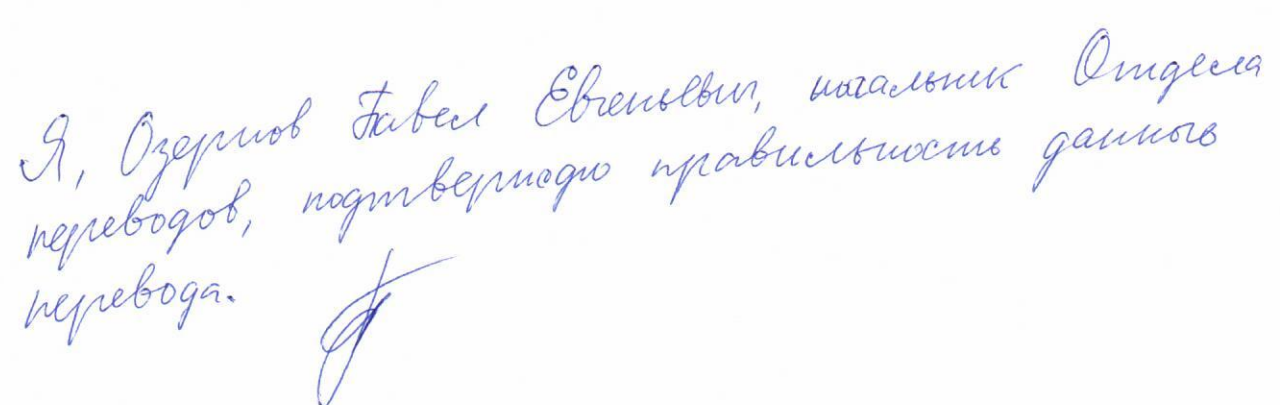 Я, Озернов Павел Евгеньевич, начальник Отдела
переводов, подтверждаю правильность данного
перевода.